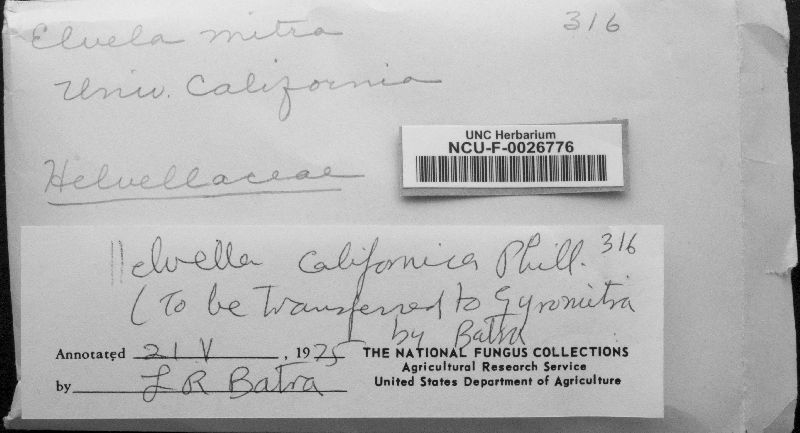 Elvela mitra 316
Univ. California
UNC Herbarium
NCU-F-0026776
Helvellaceae
Helvella californica Phill. 316
(To be transferred to Gyromitra
by Batra
Annotated 21 V, 1975
by L R Batra
THE NATIONAL FUNGUS COLLECTIONS
Agricultural Research Service
United States Department of Agriculture